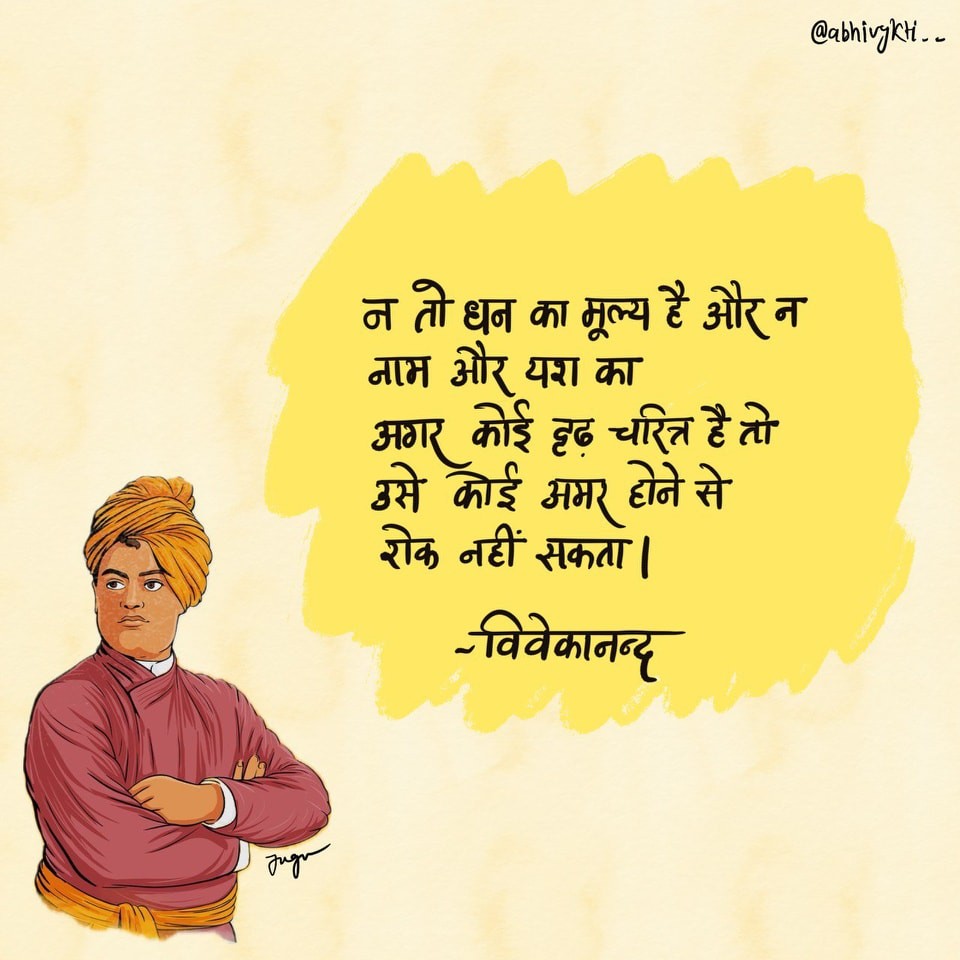 @abhivykti__
न तो धन का मूल्य है और न
नाम और यश का
अगर कोई दृढ़ चरित्र है तो
उसे कोई अमर होने से
रोक नहीं सकता।
~विवेकानन्द